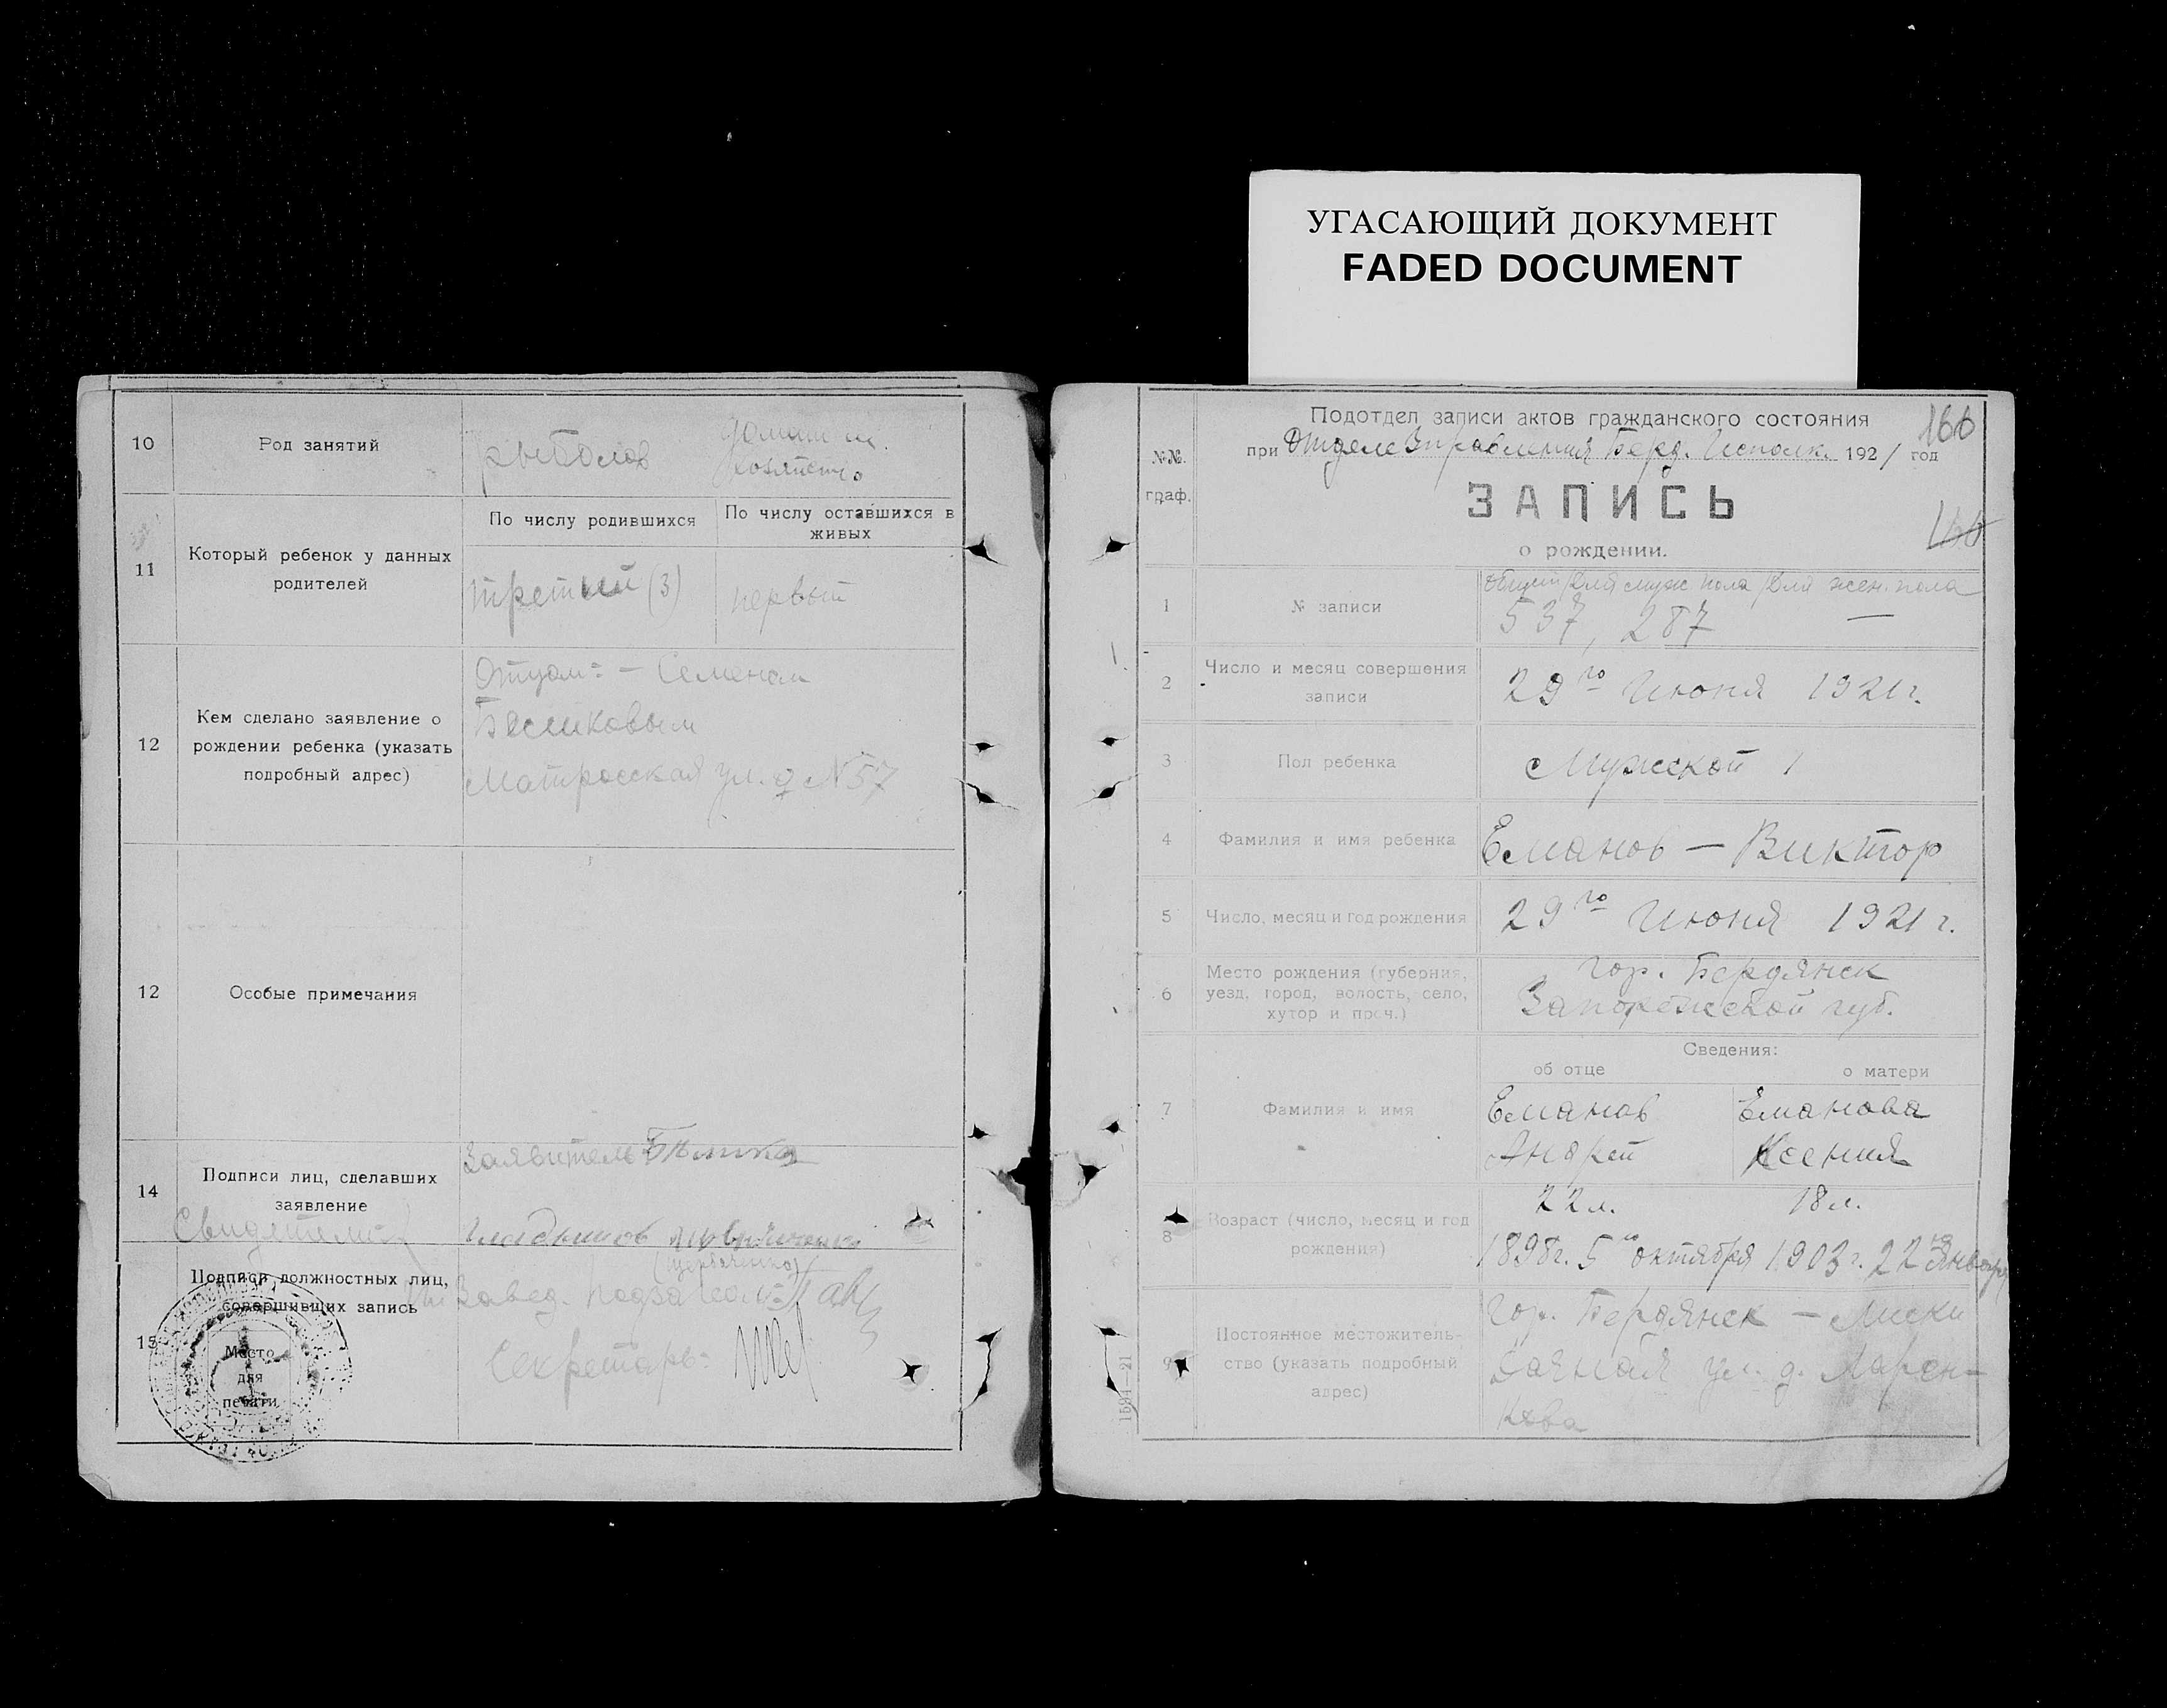 УГАСАЮЩИЙ ДОКУМЕНТ
FADED DOCUMENT
10
Род занятий
рыболов
домашн.
хозяйство
11
Который ребенок у данных
родителей
По числу родившихся
По числу оставшихся в
живых
третий (3)
первый
12
Кем сделано заявление о
рождении ребенка (указать
подробный адрес)
Отцом: - Семеном
Матросская ул. д № 57
12
Особые примечания
14
Подписи лиц, сделавших
заявление
Заявитель
Свидетели
15
Подписи должностных лиц,
совершивших запись
Место
для
печати
Завед.
Секретарь:
№№.
граф.
Подотдел записи актов гражданского состояния
при Отделе Управления Берд. Исполк. 1921 год
166
ЗАПИСЬ
о рождении.
1
№ записи
общий / для муж пола / для жен. пола
537, 287 —
2
Число и месяц совершения
записи
29го Июня 1921 г.
3
Пол ребенка
Мужской 1
4
Фамилия и имя ребенка
Еманов — Виктор
5
Число, месяц и год рождения
29го Июня 1921 г.
6
Место рождения (губерния,
уезд, город, волость, село,
хутор и проч.)
гор. Бердянск
Запорожской губ.
Сведения:
об отце
о матери
7
Фамилия и имя
Еманов
Андрей
Еманова
Ксения
8
Возраст (число, месяц и год
рождения)
22 л.
18 л.
1898 г. 5го октября
1903 г. 22го Января
9
Постоянное местожитель-
ство (указать подробный
адрес)
гор. Бердянск —
ул. д.
1591—21